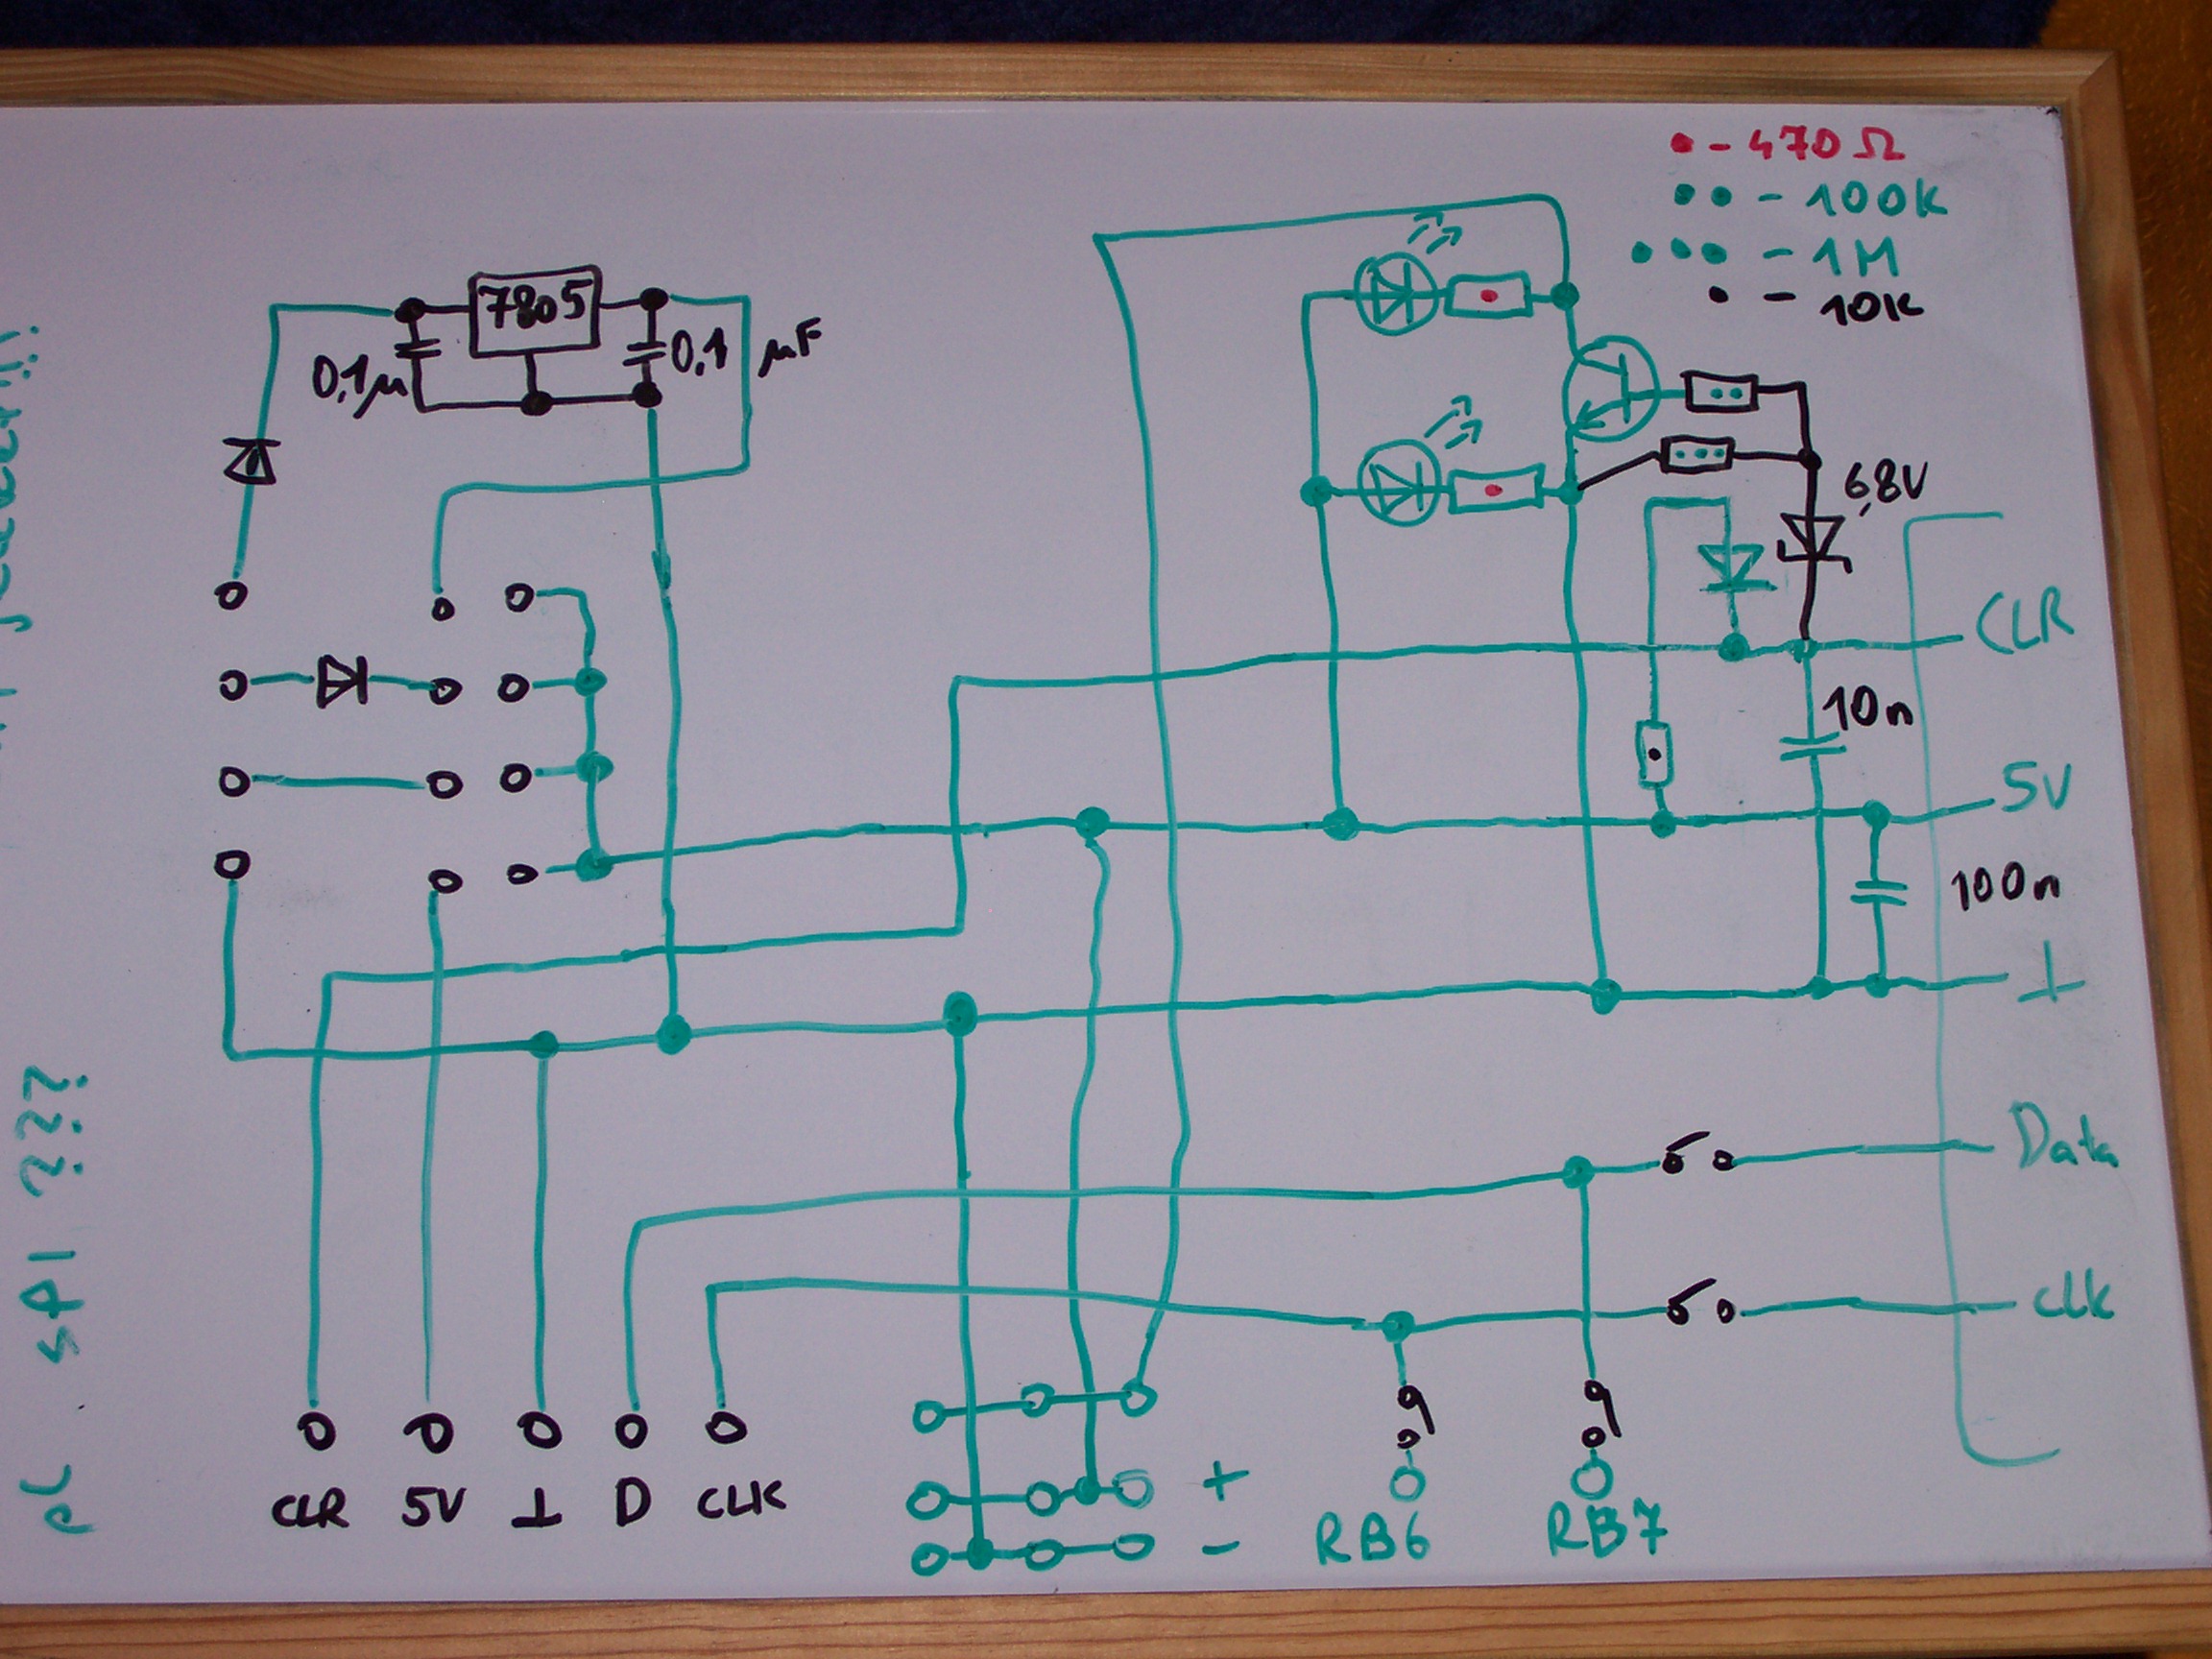 - 470 Ω
- 100k
- 1M
- 10k
7805
0,1μ
0,1 μF
6,8V
CLR
10n
5V
100n
⊥
Data
clk
CLR 5V ⊥ D CLK
+
-
RB6 RB7